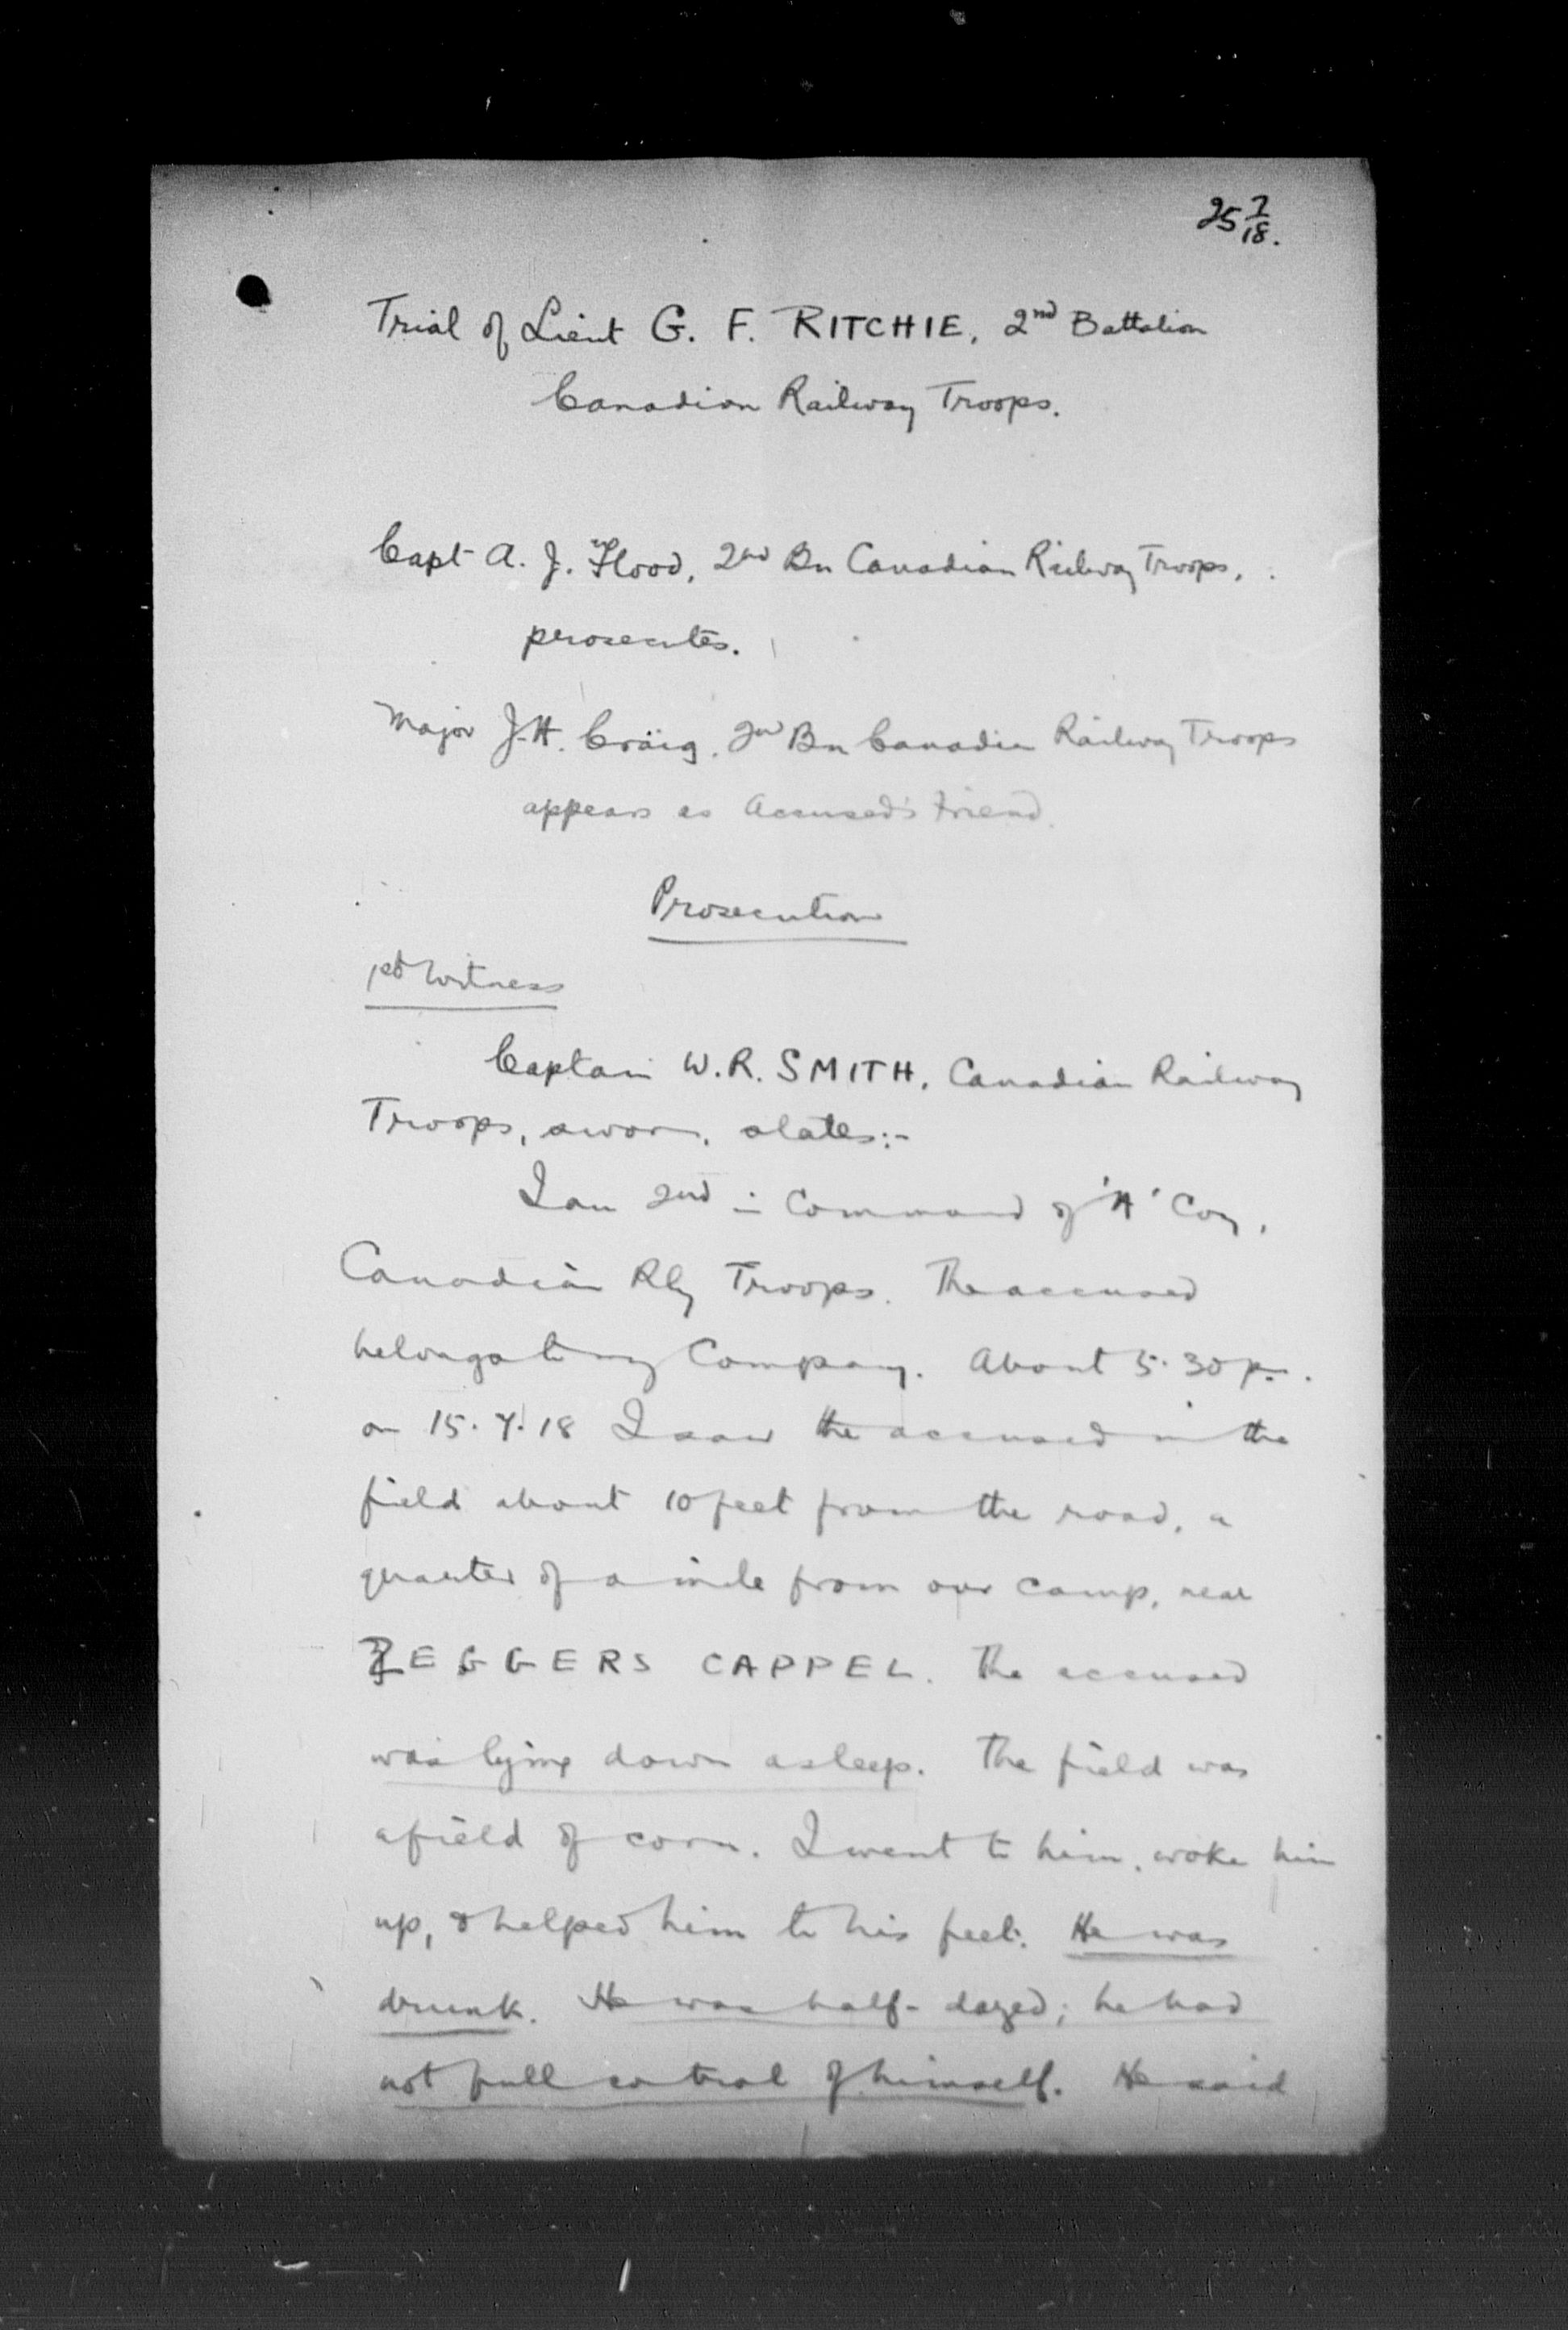 25 7/18.
Trial of Lieut G. F. RITCHIE, 2nd Battalion
Canadian Railway Troops.
Capt A. J. Flood, 2nd Bn Canadian Railway Troops,
prosecutes.
Major J. H. Craig, 2nd Bn Canadian Railway Troops
appears as Accused's friend.
Prosecution
1st Witness
Captain W. R. SMITH, Canadian Railway
Troops, sworn, states:-
I am 2nd in Command of 'A' Coy,
Canadian Rly Troops. The accused
belongs to my Company. About 5.30 pm.
on 15.7.18 I saw the accused in the
field about 10 feet from the road, a
quarter of a mile from our camp, near
ZEGGERS CAPPEL. The accused
was lying down asleep. The field was
a field of corn. I went to him, woke him
up, & helped him to his feet. He was
drunk. He was half-dazed; he had
not full control of himself. He said